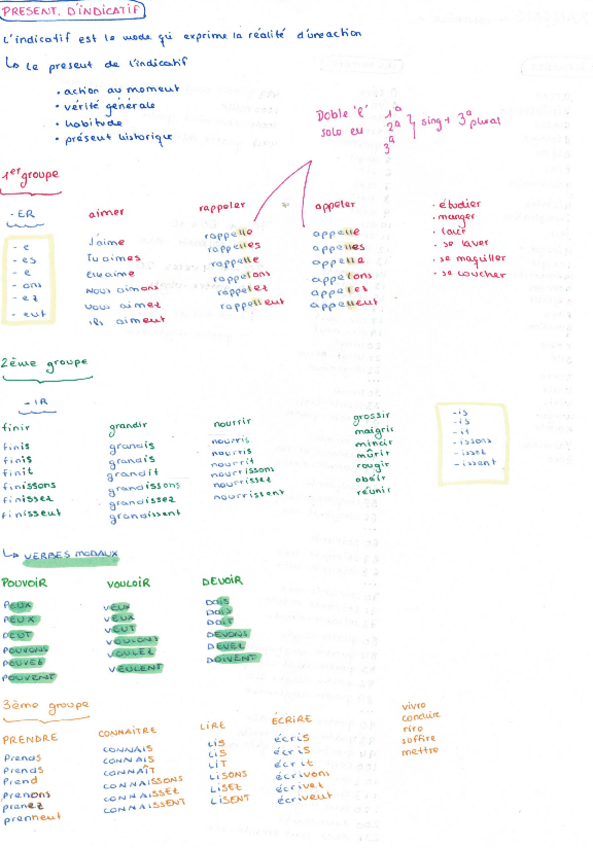 PRESENT D'INDICATIF
L'indicatif est le mode qui exprime la réalité d'une action
↳ Le present de l'indicatif
• action au moment
• vérité générale
• habitude
• présent historique
Doble 'l' solo en 1ª 2ª 3ª } sing + 3ª plural
1er groupe
-ER
- e
- es
- e
- ons
- ez
- ent
aimer
J'aime
Tu aimes
Elle aime
Nous aimons
Vous aimez
ils aiment
rappeler
rappelle
rappelles
rappelle
rappelons
rappelez
rappellent
appeler
appelle
appelles
appelle
appelons
appelez
appellent
• étudier
• manger
• se laver
• se maquiller
• se coucher
2ème groupe
-IR
finir
finis
finis
finit
finissons
finissez
finissent
grandir
grandis
grandis
grandit
grandissons
grandissez
grandissent
nourrir
nourris
nourris
nourrit
nourrissons
nourrissez
nourrissent
grossir
maigrir
mincir
mûrir
rougir
obéir
réunir
-is
-is
-it
-issons
-issez
-issent
↳ VERBES MODAUX
POUVOIR
PEUX
PEUX
PEUT
POUVONS
POUVEZ
POUVENT
VOULOIR
VEUX
VEUX
VEUT
VOULONS
VOULEZ
VEULENT
DEVOIR
DOIS
DOIS
DOIT
DEVONS
DEVEZ
DOIVENT
3ème groupe
PRENDRE
Prends
Prends
Prend
Prenons
prenez
prennent
CONNAITRE
CONNAIS
CONNAIS
CONNAÎT
CONNAISSONS
CONNAISSEZ
CONNAISSENT
LIRE
LIS
LIS
LIT
LISONS
LISEZ
LISENT
ÉCRIRE
écris
écris
écrit
écrivons
écrivez
écrivent
vivre
conduire
rire
suffire
mettre